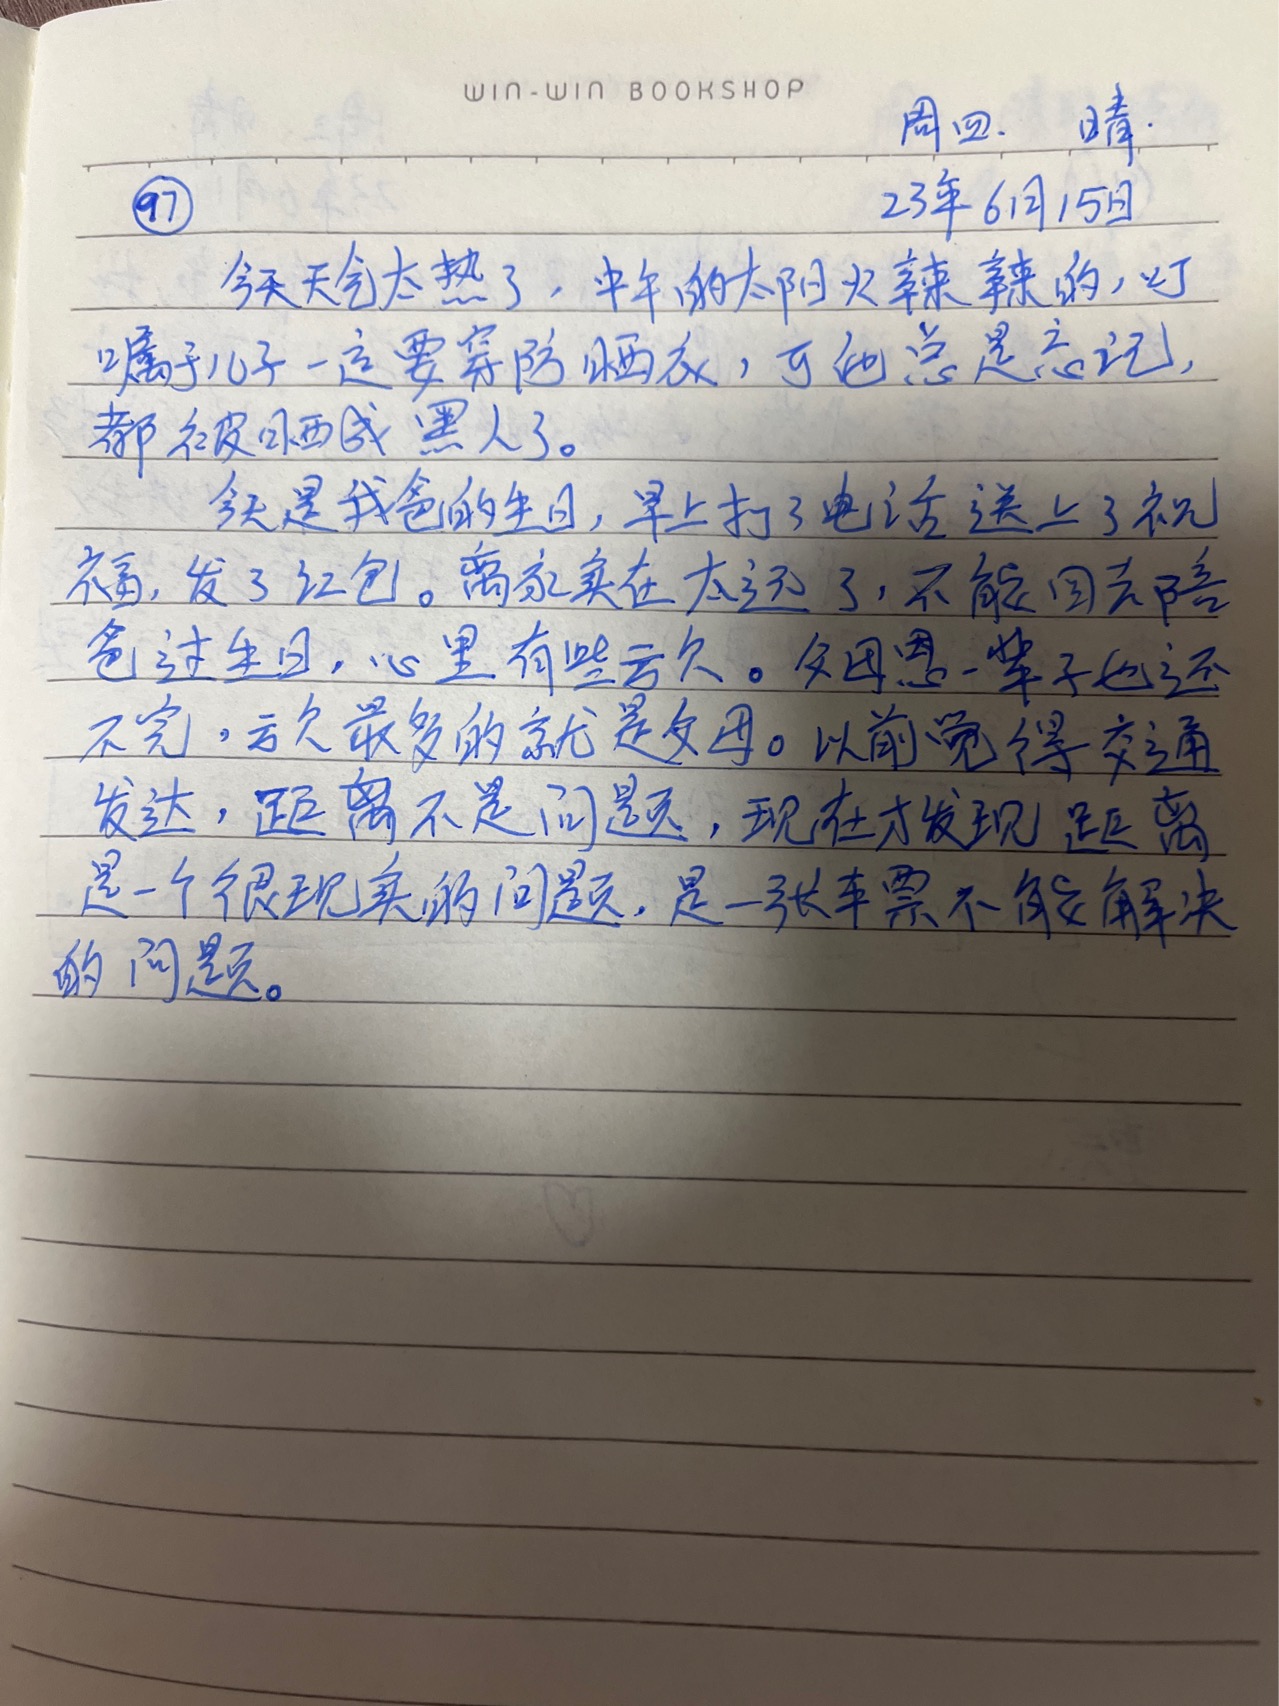 WIN-WIN BOOKSHOP
周四. 晴.
97
23年6月15日
今天天气太热了，中午的太阳火辣辣的，叮
嘱于儿子一定要穿防晒衣，可他总是忘记，
都被晒成黑人了。
今天是我爸的生日，早上打了电话送上了祝
福，发了红包。离家实在太远了，不能回去陪
爸过生日，心里有些亏欠。父母恩一辈子也还
不完，亏欠最多的就是父母。以前觉得交通
发达，距离不是问题，现在才发现距离
是一个很现实的问题，是一张车票不能解决
的问题。